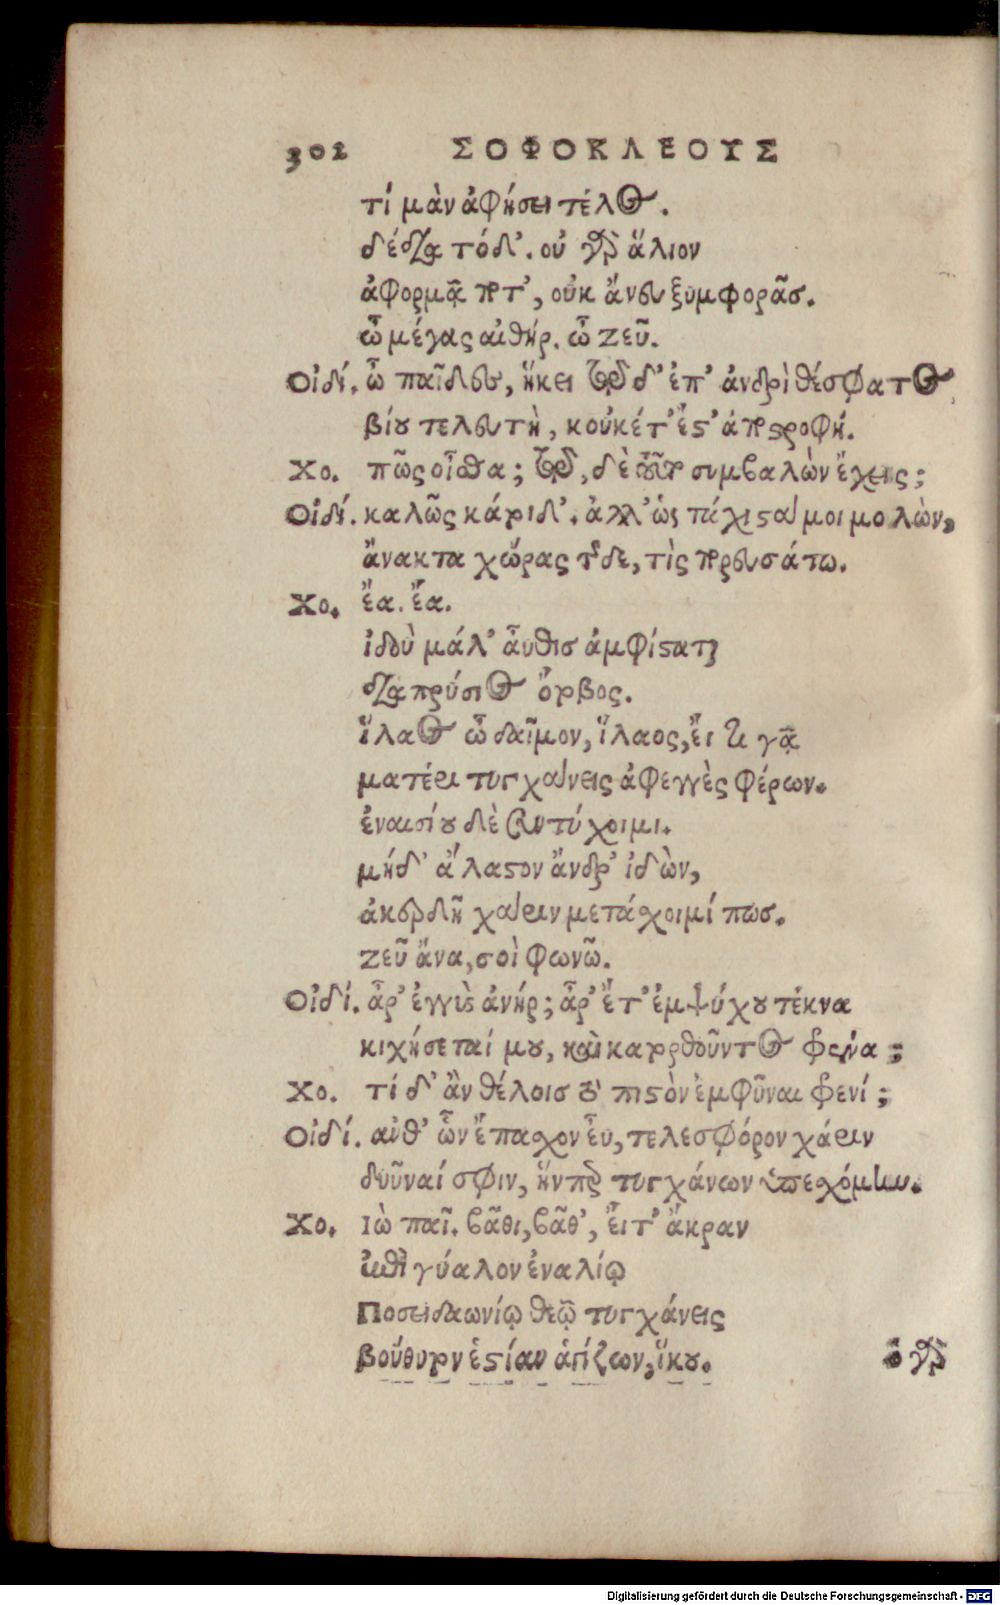 302 ΣΟΦΟΚΛΕΟΥΣ
τί μὰν ἀφήσει τέλος.
δέδια τόδ᾽. οὐ γὰρ ἅλιον
ἀφορμᾷ ποτ᾽, οὐκ ἄνευ ξυμφορᾶσ.
ὦ μέγας αἰθήρ. ὦ ζεῦ.
Οἰδί. ὦ παῖδες, ἥκει τῷδ᾽ ἐπ᾽ ἀνδρὶ θέσφατος
βίου τελευτὴ, κοὐκέτ᾽ ἔστ᾽ ἀποστροφή.
Χο. πῶς οἶσθα; τῷ δὲ τοῦτο συμβαλὼν ἔχεις;
Οἰδί. καλῶς κάτοιδ᾽. ἀλλ᾽ ὡς τάχιστά μοι μολὼν,
ἄνακτα χώρας τῆσδε, τὶς πορευσάτω.
Χο. ἔα. ἔα.
ἰδοὺ μάλ᾽ αὖθισ ἀμφίσταται
διαπρύσιος ὄτοβος.
ἵλαος ὦ δαῖμον, ἵλαος, εἴ τι γᾷ
ματέρι τυγχάνεις ἀφεγγὲς φέρων.
ἐναισίου δὲ συντύχοιμι.
μήδ᾽ ἄλαστον ἄνδρ᾽ ἰδὼν,
ἀκερδῆ χάριν μετάσχοιμί πωσ.
ζεῦ ἄνα, σοὶ φωνῶ.
Οἰδί. ἆρ᾽ ἐγγὺς ἀνήρ; ἆρ᾽ ἔτ᾽ ἐμψύχου τέκνα
κιχήσεταί μου, καὶ κατορθοῦντος φρένα;
Χο. τί δ᾽ ἂν θέλοισ τὸ πιστὸν ἐμφῦναι φρενί;
Οἰδί. ἀνθ᾽ ὧν ἔπασχον εὖ, τελεσφόρον χάριν
δοῦναί σφιν, ἥνπερ τυγχάνων ὑπεσχόμην.
Χο. ἰὼ παῖ. βᾶθι, βᾶθ᾽, εἴτ᾽ ἄκραν
ἐπὶ γύαλον ἐναλίῳ
Ποσειδαωνίῳ θεῷ τυγχάνεις
βούθυτον ἑστίαν ἁγίζων, ἵκου.
ὁ γὰρ
Digitalisierung gefördert durch die Deutsche Forschungsgemeinschaft - DFG